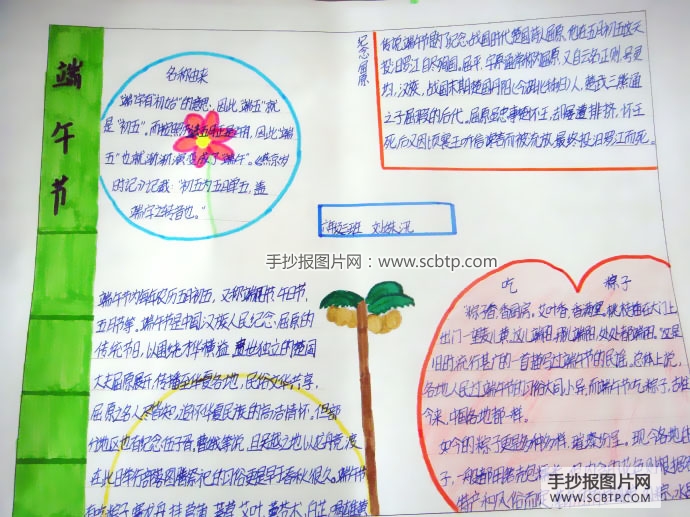 端午节
名称由来
"端"字有"初始"的意思,因此"端五"就
是"初五"。而按照历法五月正是"午"月,因此"端
五"也就渐渐演变成了"端午"。《燕京岁
时记》记载:"初五为五月单五,盖
端字之转音也。"
纪念屈原
传说端午节是为了纪念战国时代楚国诗人屈原,他在五月初五这天
投汨罗江自尽殉国。屈平,字原,通常称为屈原,又自云名正则,号灵
均,汉族,战国末期楚国丹阳(今湖北秭归)人,楚武王熊通
之子屈瑕的后代。屈原虽忠事楚怀王,却屡遭排挤,怀王
死后又因顷襄王听信谗言而被流放,最终投汨罗江而死。
手抄报图片网:www.scbtp.com
端午节为每年农历五月初五,又称端阳节、午日节、
五月节等。端午节是中国汉族人民纪念屈原的
传统节日,以围绕才华横溢、遗世独立的楚国
大夫屈原展开,传播至华夏各地,民俗文化共享,
屈原之名人尽皆知,追怀华夏民族的高洁情怀。但部
分地区也有纪念伍子胥、曹娥等说,
吃
粽子
"粽子香,香厨房。艾叶香,香满堂。桃枝插在大门上,
出门一望麦儿黄。这儿端阳,那儿端阳,处处都端阳。"这是
旧时流行甚广的一首描写过端午节的民谣。总体上说,
各地人民过端午节的习俗大同小异,而端午节吃粽子,古往
今来,中国各地都一样。
如今的粽子更是多种多样,璀璨纷呈。现今各地
手抄报图片网
WWW.SCBTP.COM